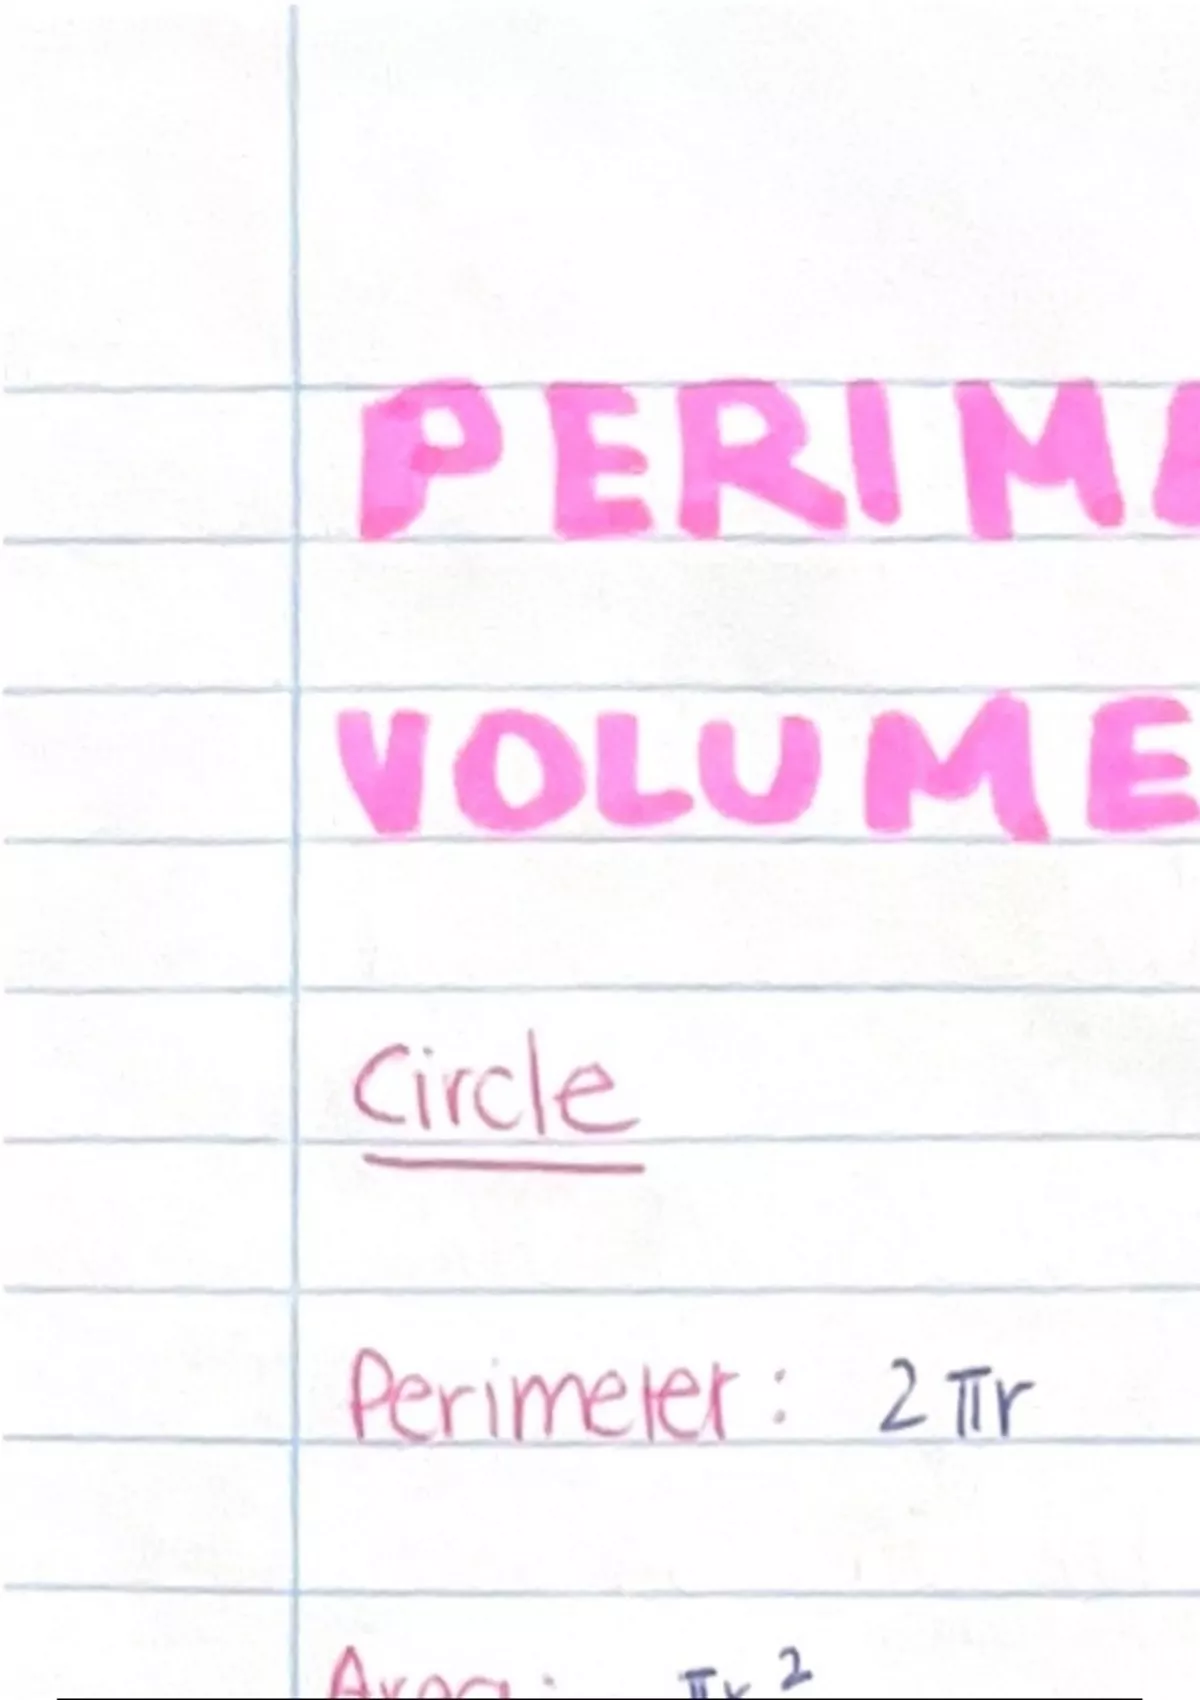 PERIME
VOLUME
Circle
Perimeter: 2πr
Area: πr²